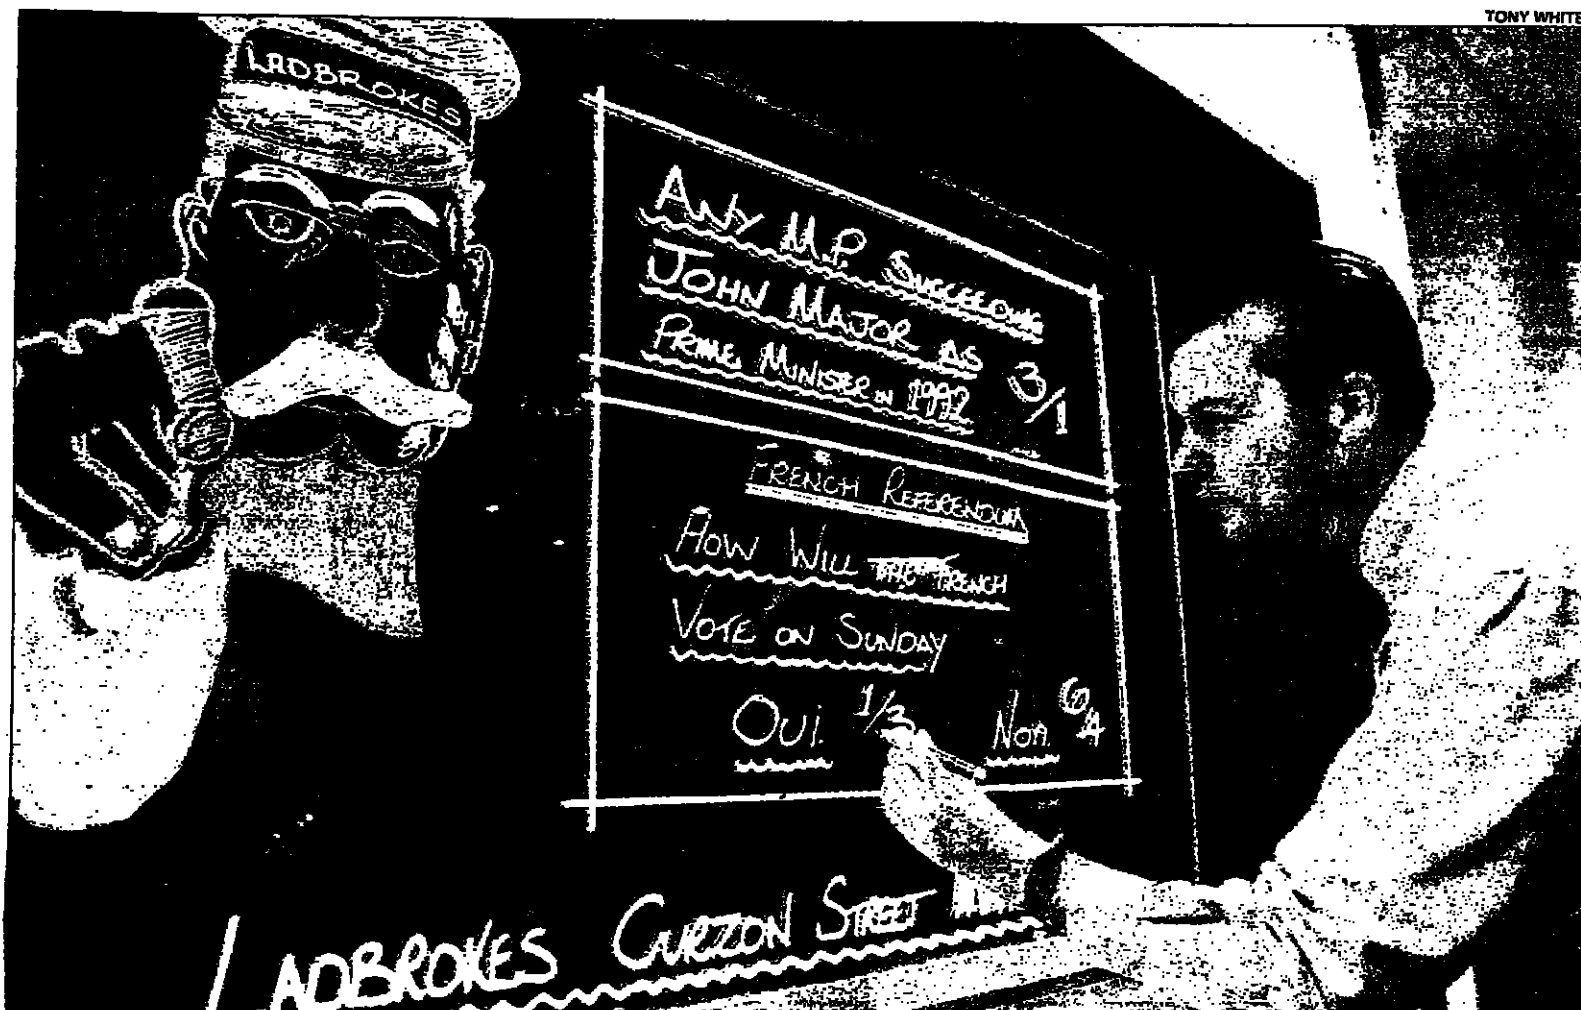 TONY WHITE
LADBROKES
ANY M.P. SUCCEEDING
JOHN MAJOR AS
PRIME MINISER IN 1992 3/1
FRENCH REFERENDUM
HOW WILL THE FRENCH
VOTE ON SUNDAY
OUI. 1/3 NON. 6/4
LADBROKES CURZON STREET